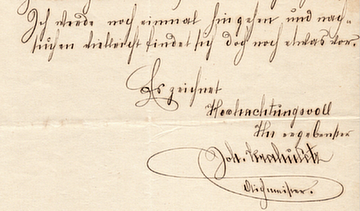 Ich werde noch einmal hingehen und nach-
suchen vielleicht findet sich doch noch etwas vor.
Es zeichnet
Hochachtungsvoll
Ihr ergebenster
Joh.